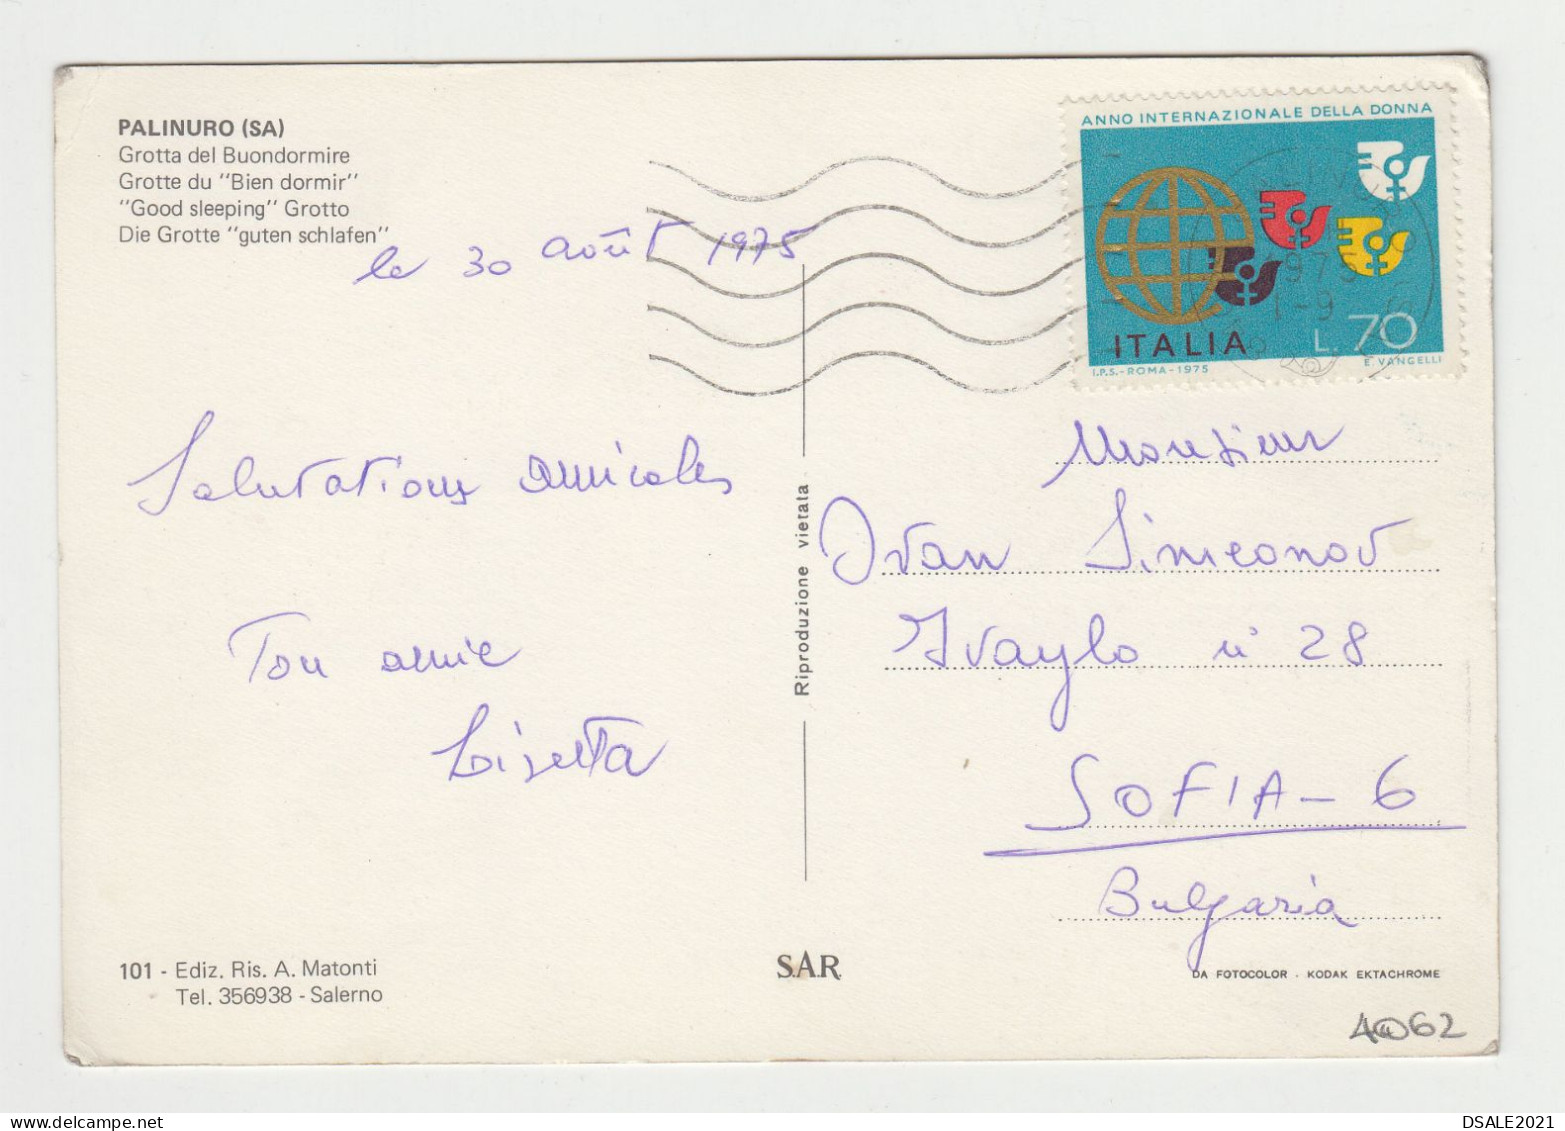 PALINURO (SA)
Grotta del Buondormire
Grotte du "Bien dormir"
"Good sleeping" Grotto
Die Grotte "guten schlafen"
le 30 août 1975
Salutations amicales
Ton amie
Lisetta
101 - Ediz. Ris. A. Matonti
Tel. 356938 - Salerno
Riproduzione vietata
S.A.R.
ANNO INTERNAZIONALE DELLA DONNA
ITALIA
L.70
I.P.S.-ROMA-1975
E. VANGELLI
1975
1-9
Monsieur
Ivan Simeonov
Ivaylo n° 28
SOFIA-6
Bulgaria
DA FOTOCOLOR - KODAK EKTACHROME
DSALE2021